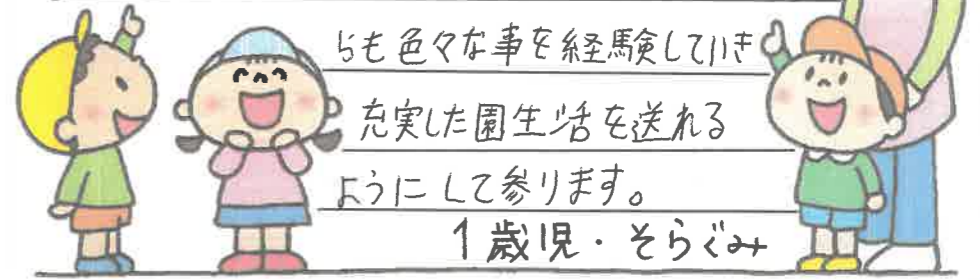 らも色々な事を経験していき
充実した園生活を送れる
ようにして参ります。
1歳児・そらぐみ